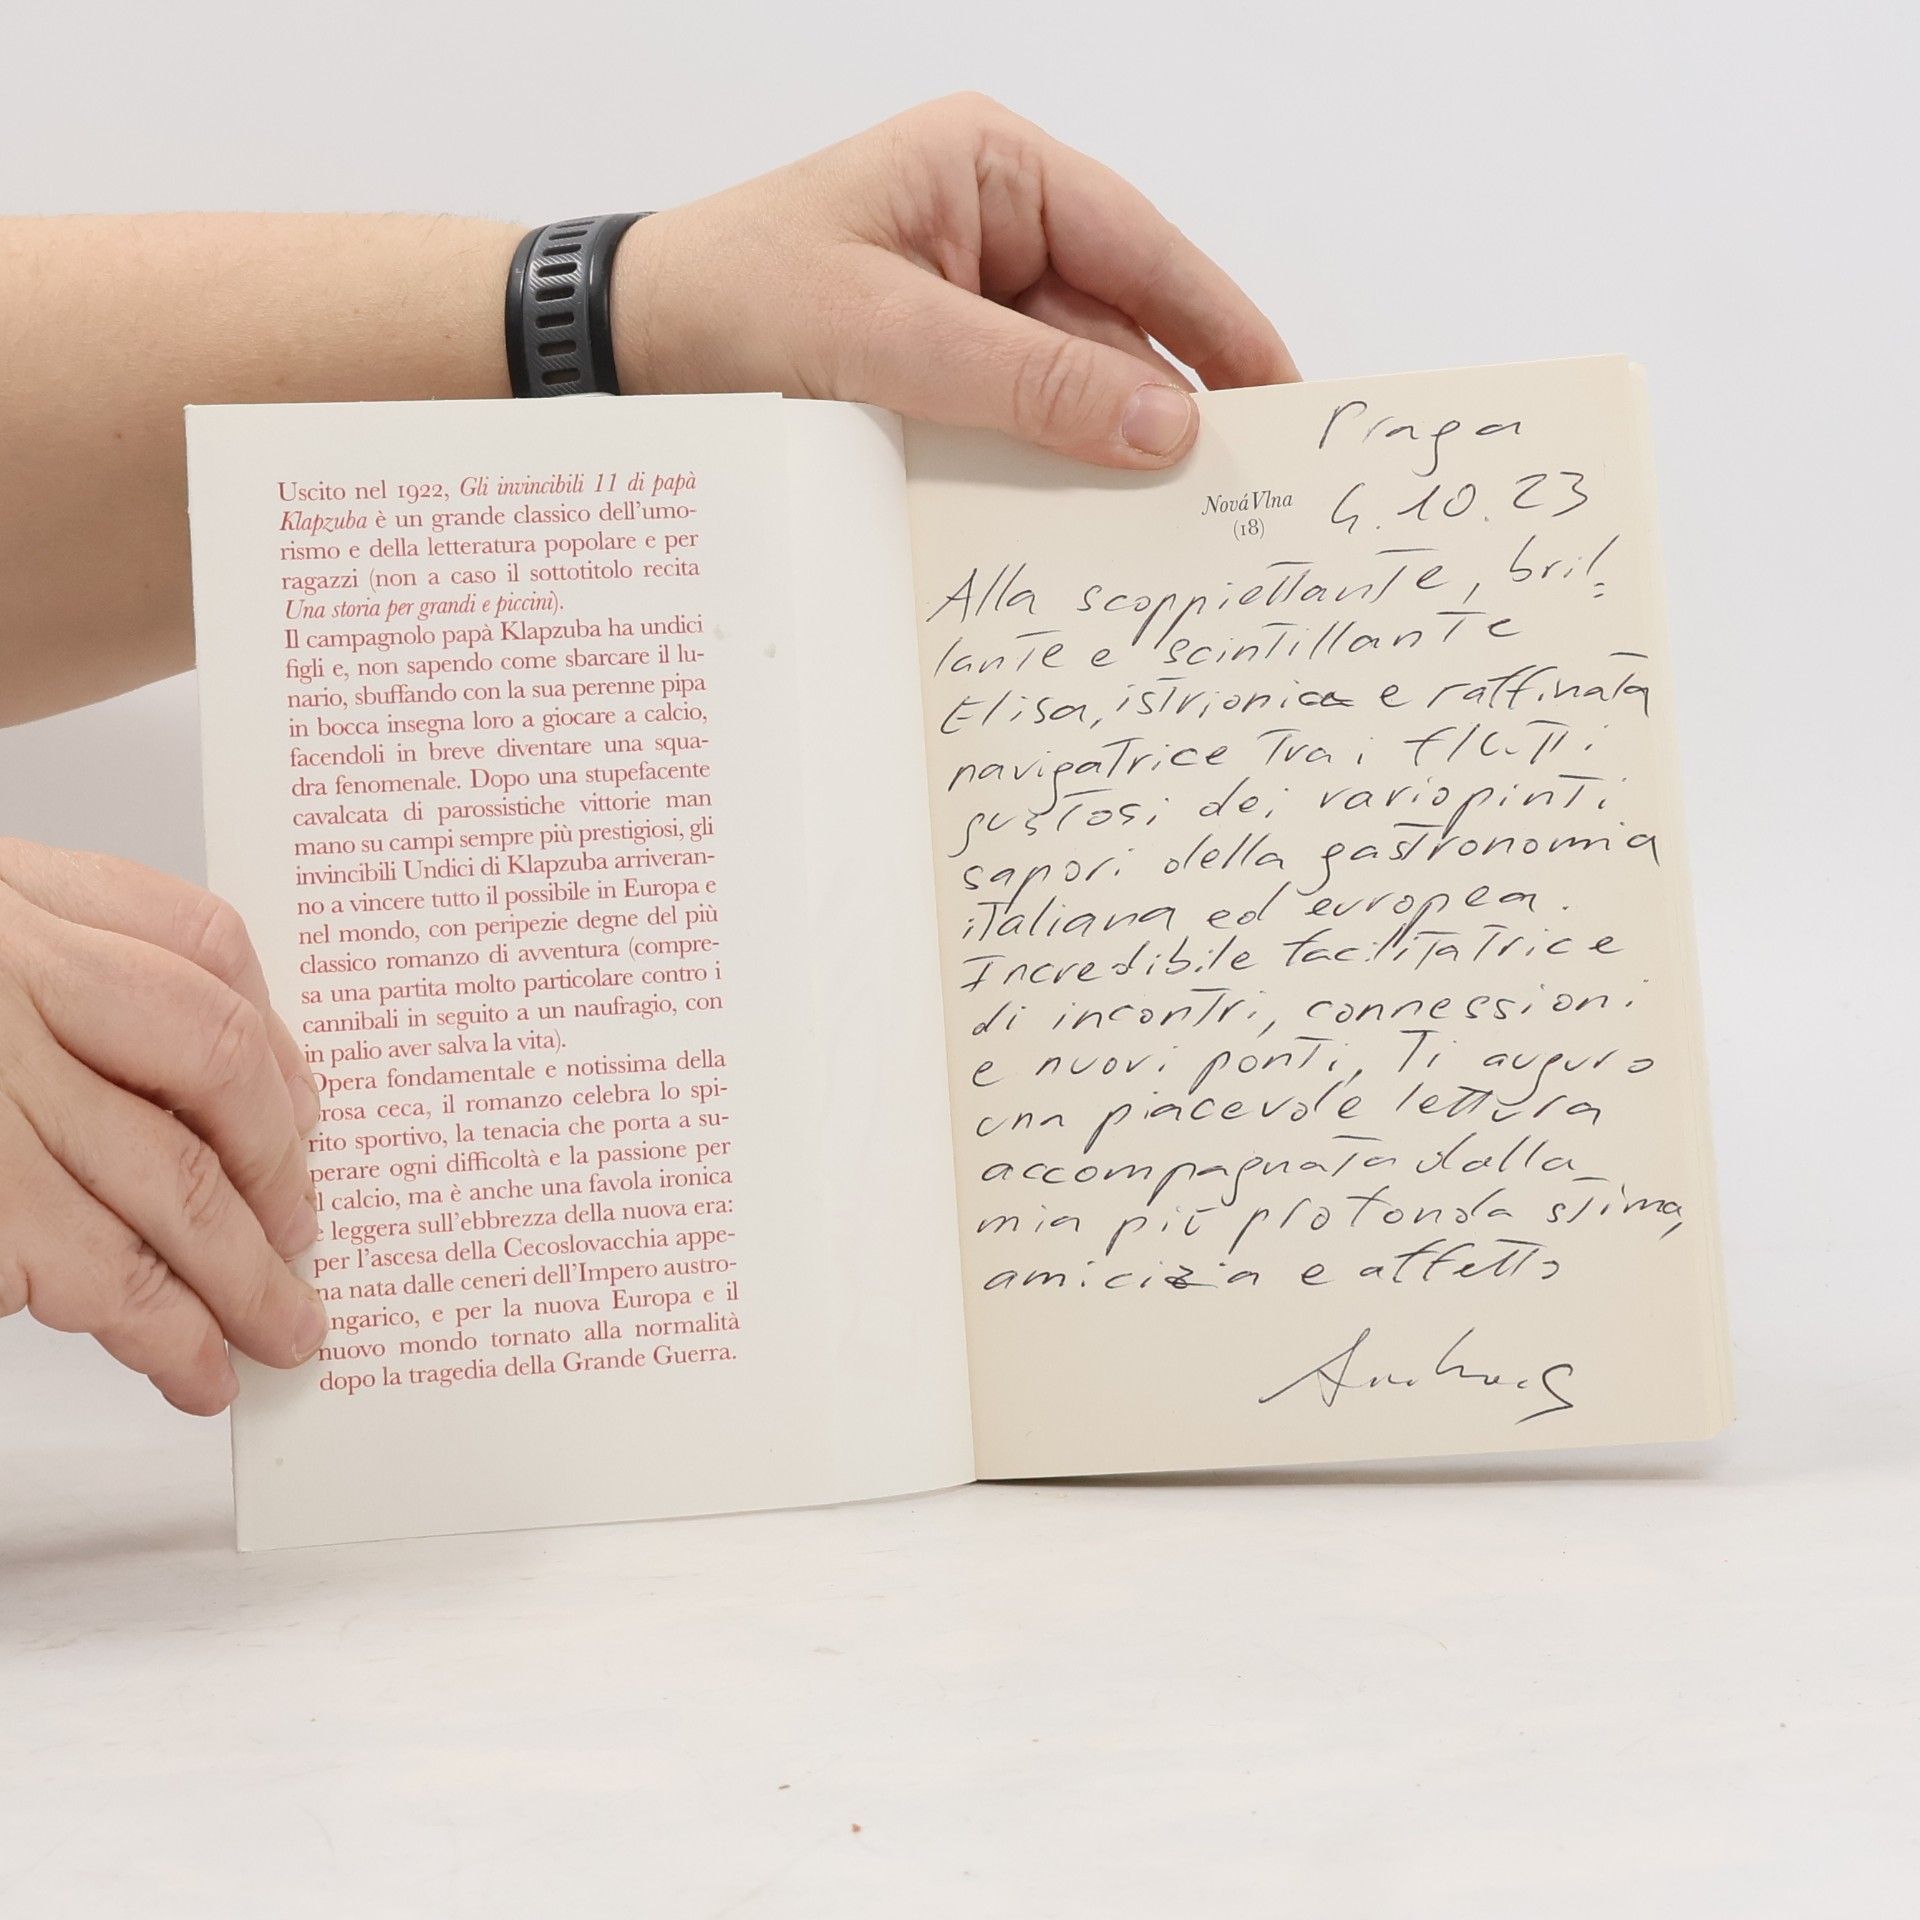 Uscito nel 1922, Gli invincibili 11 di papà
Klapzuba è un grande classico dell'umo-
rismo e della letteratura popolare e per
ragazzi (non a caso il sottotitolo recita
Una storia per grandi e piccini).
Il campagnolo papà Klapzuba ha undici
figli e, non sapendo come sbarcare il lu-
nario, sbuffando con la sua perenne pipa
in bocca insegna loro a giocare a calcio,
facendoli in breve diventare una squa-
dra fenomenale. Dopo una stupefacente
cavalcata di parossistiche vittorie man
mano su campi sempre più prestigiosi, gli
invincibili Undici di Klapzuba arriveran-
no a vincere tutto il possibile in Europa e
nel mondo, con peripezie degne del più
classico romanzo di avventura (compre-
sa una partita molto particolare contro i
cannibali in seguito a un naufragio, con
in palio aver salva la vita).
Opera fondamentale e notissima della
prosa ceca, il romanzo celebra lo spi-
rito sportivo, la tenacia che porta a su-
perare ogni difficoltà e la passione per
il calcio, ma è anche una favola ironica
e leggera sull'ebbrezza della nuova era:
per l'ascesa della Cecoslovacchia appe-
na nata dalle ceneri dell'Impero austro-
ungarico, e per la nuova Europa e il
nuovo mondo tornato alla normalità
dopo la tragedia della Grande Guerra.
Praga
NováVlna
(18)
4.10.23
Alla scoppiettante, bril=
lante e scintillante
Elisa, istrionica e raffinata
navigatrice tra i flutti
gustosi dei variopinti
sapori della gastronomia
italiana ed europea.
Incredibile facilitatrice
di incontri, connessioni
e nuovi ponti, Ti auguro
una piacevole lettura
accompagnata dalla
mia più profonda stima,
amicizia e affetto